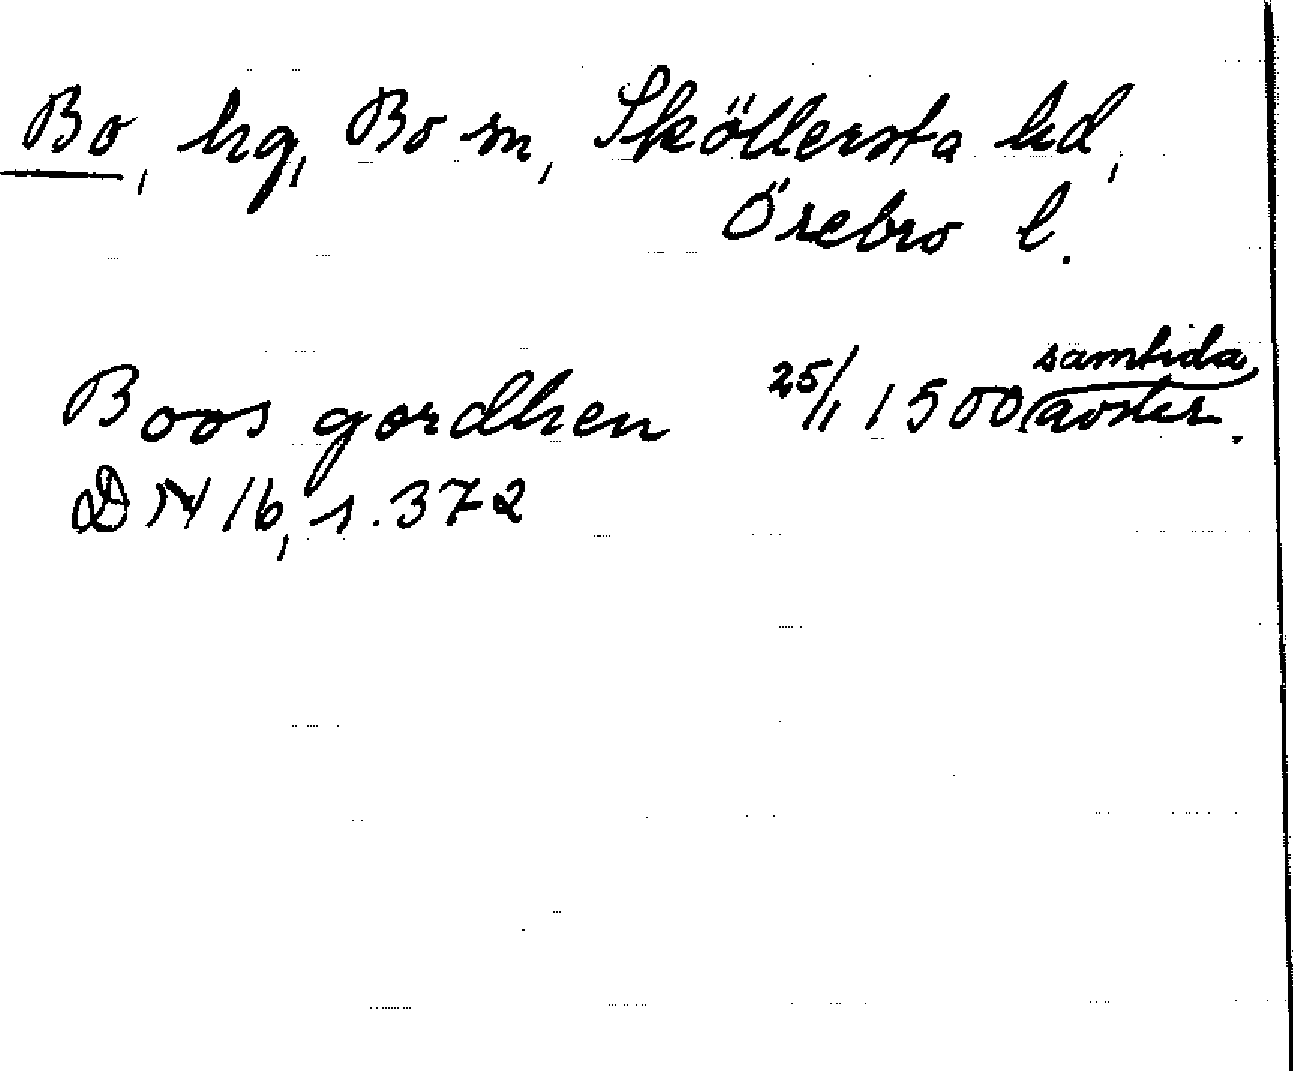 Bo, hg, Bo sn, Sköllersta hd,
Örebro l.
Boos gordhen 25/11 1500 (samtida
avskr.
DN 16, s. 372